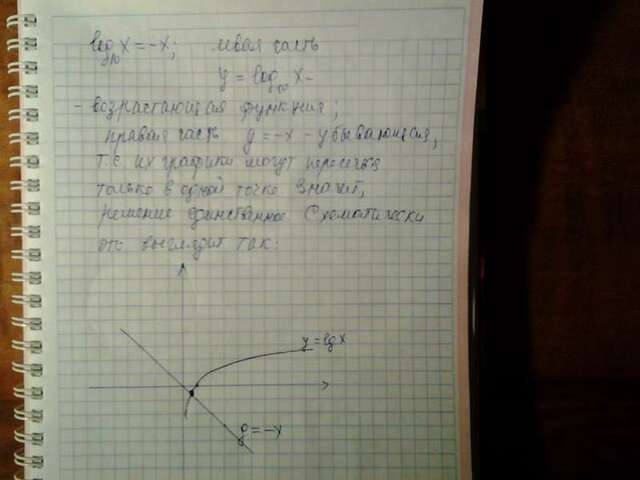 log₁₀ x = -x; левая часть
y = log₁₀ x -
- возрастающая функция;
правая часть y = -x - убывающая,
т.е их графики могут пересечься
только в одной точке Значит,
решение единственное Схематически
это выглядит так:
y = lg x
y = -x